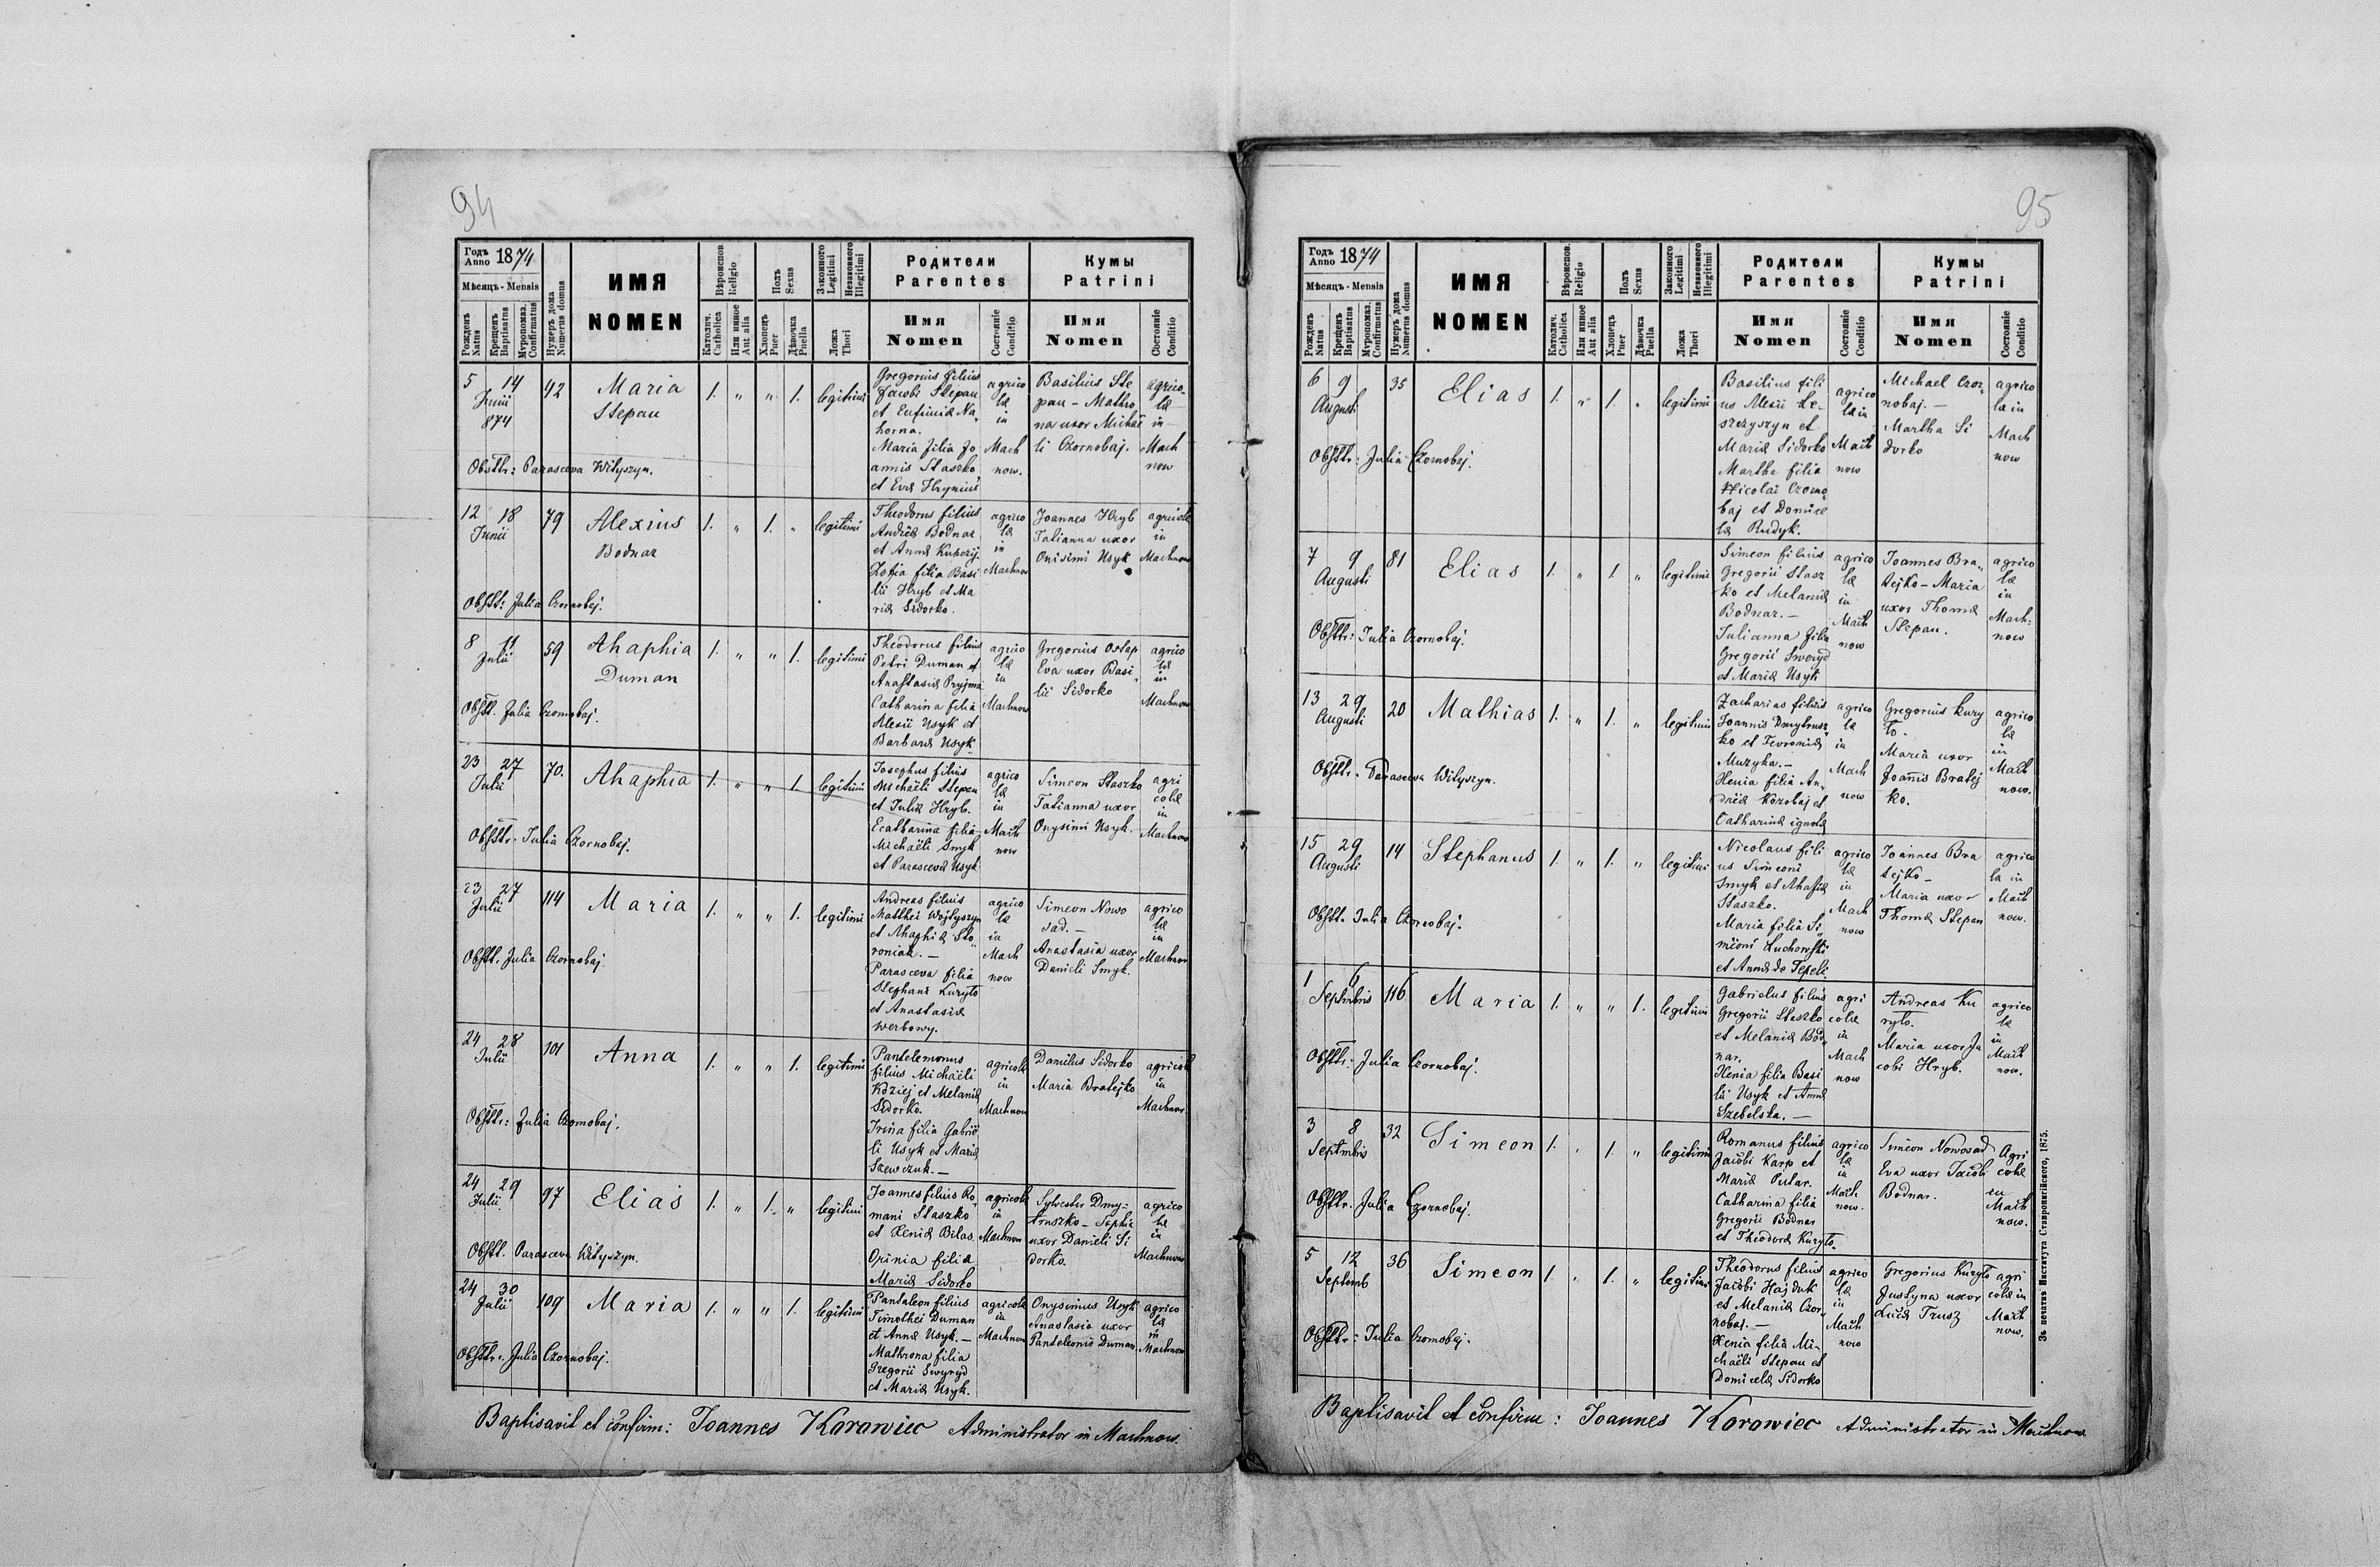 94
Годъ Anno 1874
Мѣсяцъ - Mensis
Рожденъ Natus
Крещенъ Baptisatus
Мѵропомаз. Confirmatus
Нумеръ дома Numerus domus
ИМЯ
NOMEN
Вѣроиспов. Religio
Католич. Catholica
Или инное Aut alia
Полъ Sexus
Хлопецъ Puer
Дѣвочка Puella
Законного Legitimi
Незаконного Illegitimi
Ложа Thori
Родители
Parentes
Имя
Nomen
Состояніе Conditio
Кумы
Patrini
Имя
Nomen
Состояніе Conditio
5 14 Junii 874
92
Maria
Stepau
1. " " 1. legitimi
Gregorius filius
Jacobi Stepau
et Eufimiæ Na„
horna.
Maria filia Jo
annis Staszko
et Evæ Hryniuś
agrico
læ
in
Mach
now.
Basilius Ste
pau - Matro
na uxor Michaë
li Czornobaj.
agrico-
læ
in
Mach
now
Obsttr: Parasceva Wityszyn.
12 18 Junii
79
Alexius
Bodnar
1. " 1. " legitimi
Theodorus filius
Andreæ Bodnar
et Annæ
Zofia filia Basi
lii Hryb et Ma
riæ Sidorko.
agrico
læ
in
Machnow
Joannes Hryb
Tatianna uxor
Onisimi Usyk
agricolæ
in
Machnow
Obstt: Julia Czornobaj.
8 11 Julii
59
Ahaphia
Duman
1. " " 1. legitimi
Theodorus filius
Petri Duman et
Anastasiæ Pryjma
Catharina filia
Alexii Usyk et
Barbaræ Usyk
agrico
læ
in
Machnow
Gregorius Ostap
Eva uxor Basi„
lii Sidorko
agrico
læ
in
Machnow
Obstt. Julia Czornobaj.
23 27 Julii
70.
Ahaphia
1. " " 1. legitimi
Josephus filius
Michaëli Stepau
et Juliæ Hryb.
Ecatharina filia
Michaëli Smyk
et Parascevæ Usyk
agrico
læ
in
Mach
now
Simeon Staszko
Tatianna uxor
Onysimi Usyk.
agri
colæ
in
Machnow
Obsttr. Julia Czornobaj.
23 27 Julii
114
Maria
1. " " 1. legitimi
Andreas filius
Matthei Wojtyszyn
et Ahaphiæ Sto„
roniak. -
Parasceva filia
Stephani Kuryło
et Anastasiæ
Werbowy.
agrico
læ
in
Mach
now
Simeon Nowo
sad. -
Anastasia uxor
Danieli Smyk.
agrico
læ
in
Machnow
Obstt. Julia Czornobaj
24 28 Julii
101
Anna
1. " " 1. legitimi
Pantelemonus
filius Michaëli
Kdziej et Melaniæ
Sidorko.
Irina filia Gabrië
li Usyk et Mariæ
Szewczuk. -
agricolæ
in
Machnow
Danilus Sidorko
Maria Bratejko
agricolæ
in
Machnow
Obsttr: Julia Czornobaj.
24 29 Julii
97
Elias
1. " 1. " legitimi
Joannes filius Ro„
mani Staszko
et Xeniæ Bilas.
filia
Mariæ Sidorko
agricolæ
in
Machnow
Sylvester Dmy-
truszko - Sophia
uxor Danieli Si
dorko.
agrico
læ
in
Machnow
Obstt. Parasceva Wityszyn.
24 30 Julii
109
Maria
1. " " 1. legitimi
Pantaleon filius
Timothei Duman
et Annæ Usyk. -
Matrona filia
Gregorii Swyryd
et Mariæ Usyk.
agricolæ
in
Machnow
Onysimus Usyk
Anastasia uxor
Panteleonis Duman
agrico
læ
in
Machnow
Obsttr. Julia Czornobaj.
Baptisavit et confirm: Joannes Korowiec Administrator in Machnow.
95
Годъ Anno 1874
Мѣсяцъ - Mensis
Рожденъ Natus
Крещенъ Baptisatus
Мѵропомаз. Confirmatus
Нумеръ дома Numerus domus
ИМЯ
NOMEN
Вѣроиспов. Religio
Католич. Catholica
Или инное Aut alia
Полъ Sexus
Хлопецъ Puer
Дѣвочка Puella
Законного Legitimi
Незаконного Illegitimi
Ложа Thori
Родители
Parentes
Имя
Nomen
Состояніе Conditio
Кумы
Patrini
Имя
Nomen
Состояніе Conditio
6 9 Augusti
35
Elias
1. " 1. " legitimi
Basilius fili
us Alexii Le-
szczyszyn et
Mariæ Sidorko
Martha filia
Nicolai Czorno
baj et Domice
læ Rudyk.
agrico
læ in
Mach
now
Michael Czor„
nobaj. -
Martha Si
dorko
agrico
læ in
Mach
now
Obsttr: Julia Czornobaj.
7 9 Augusti
81
Elias
1. " 1. " legitimi
Simeon filius
Gregorii Stasz
ko et Melaniæ
Bodnar. -
Julianna filia
Gregorii Sweryd
et Mariæ Usyk
agrico
læ
in
Mach
now
Joannes Bra„
tejko - Maria
uxor Thomæ
Stepau.
agrico
læ
in
Mach-
now
Obsttr: Julia Czornobaj.
13 29 Augusti
20
Mathias
1. " 1. " legitimi
Zacharias filius
Joannis Dmytrusz„
ko et Fevroniæ
Muzyka. -
Xenia filia An„
dreæ Kozobaj et
Catharinæ ignotæ
agrico
læ
in
Mach
now
Gregorius Kury
ło.
Maria uxor
Joannis Bratej
ko.
agrico
læ
in
Mach
now.
Obsttr. Parasceva Wityszyn.
15 29 Augusti
14
Stephanus
1. " 1. " legitimi
Nicolaus fili
us Simeoni
Smyk et Ahafiæ
Staszko.
Maria filia Si„
meoni Luchowski
et Annæ de Tepeli
agrico
læ
in
Mach
now
Joannes Bra
tejko -
Maria uxor
Thomæ Stepau
agrico
læ in
Mach
now.
Obstt. Julia Czornobaj.
1 6 Septembris
116
Maria
1. " " 1. legitimi
Gabrielus filius
Gregorii Staszko
et Melaniæ Bod„
nar.
Xenia filia Basi
lii Usyk et Annæ
Szebelska. -
agri
colæ
in
Mach
now
Andreas Ku
ryło.
Maria uxor Ja
cobi Hryb.
agrico
læ
in
Mach
now.
Obsttr: Julia Czornobaj.
3 8 Septembris
32
Simeon
1. " 1. " legitimi
Romanus filius
Jacobi Karp et
Mariæ
Catharina filia
Gregorii Bodnar
et Theodoræ Kuryło.
agrico
læ
in
Mach
now.
Simeon Nowosad
Eva uxor Jacob
Bodnar.
Agri
colæ
in
Mach
now.
Obsttr. Julia Czornobaj.
5 12 Septemb
36
Simeon
1. " 1. " legitimi
Theodorus filius
Jacobi Hajduk
et Melaniæ Czor„
nobaj. -
Xenia filia Mi-
chaëli Stepau et
Domicelæ Sidorko
agrico
læ
in
Mach
now
Gregorius Kuryło
Justyna uxor
Lucæ Trusz
agri
colæ in
Mach
now.
Obsttr: Julia Czornobaj.
Baptisavit et confirm: Joannes Korowiec Administrator in Machnow
Зъ печатнѣ Института Ставропигійского, 1875.